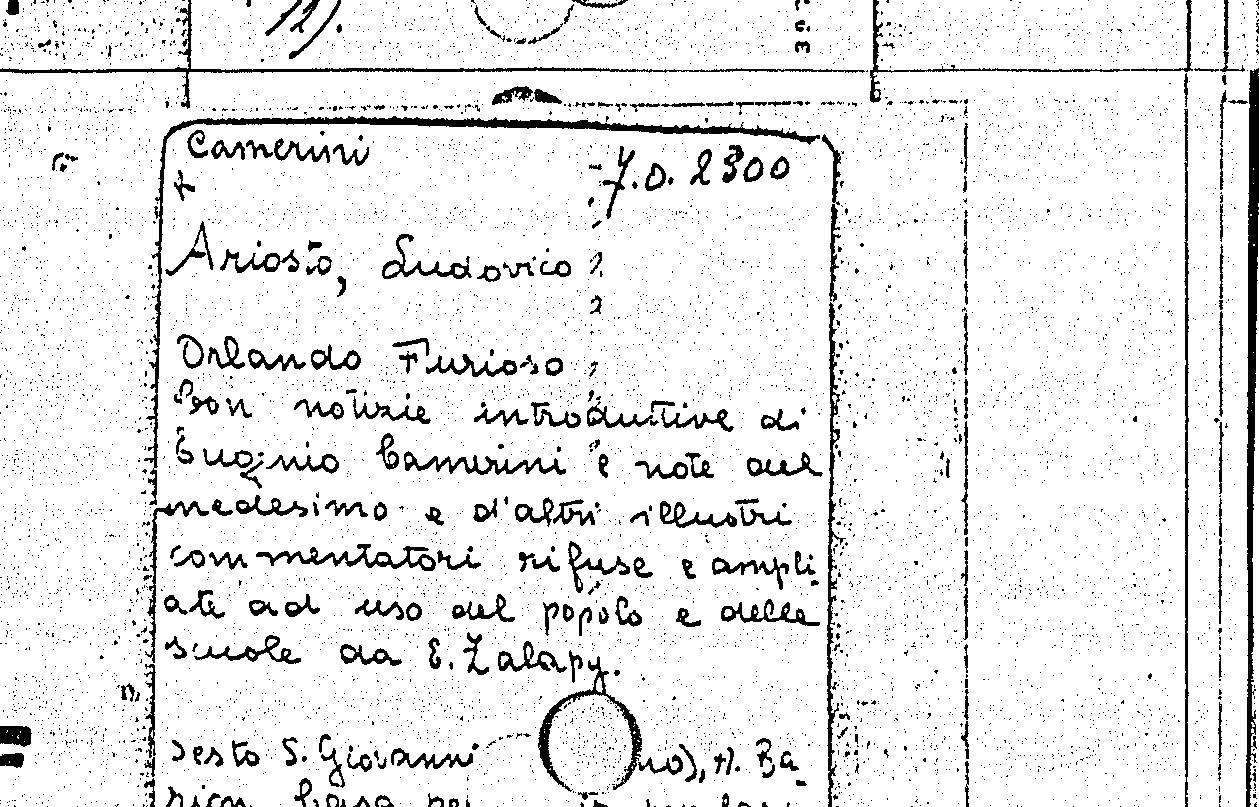 12).
Camerini
7.0. 2300
+
Ariosto, Ludovico
Orlando Furioso
Con notizie introduttive di
Eugenio Camerini e note del
medesimo e d'altri illustri
commentatori rifuse e ampli-
ate ad uso del popolo e delle
scuole da E. Zalapy.
Sesto S. Giovanni no), A. Ba-